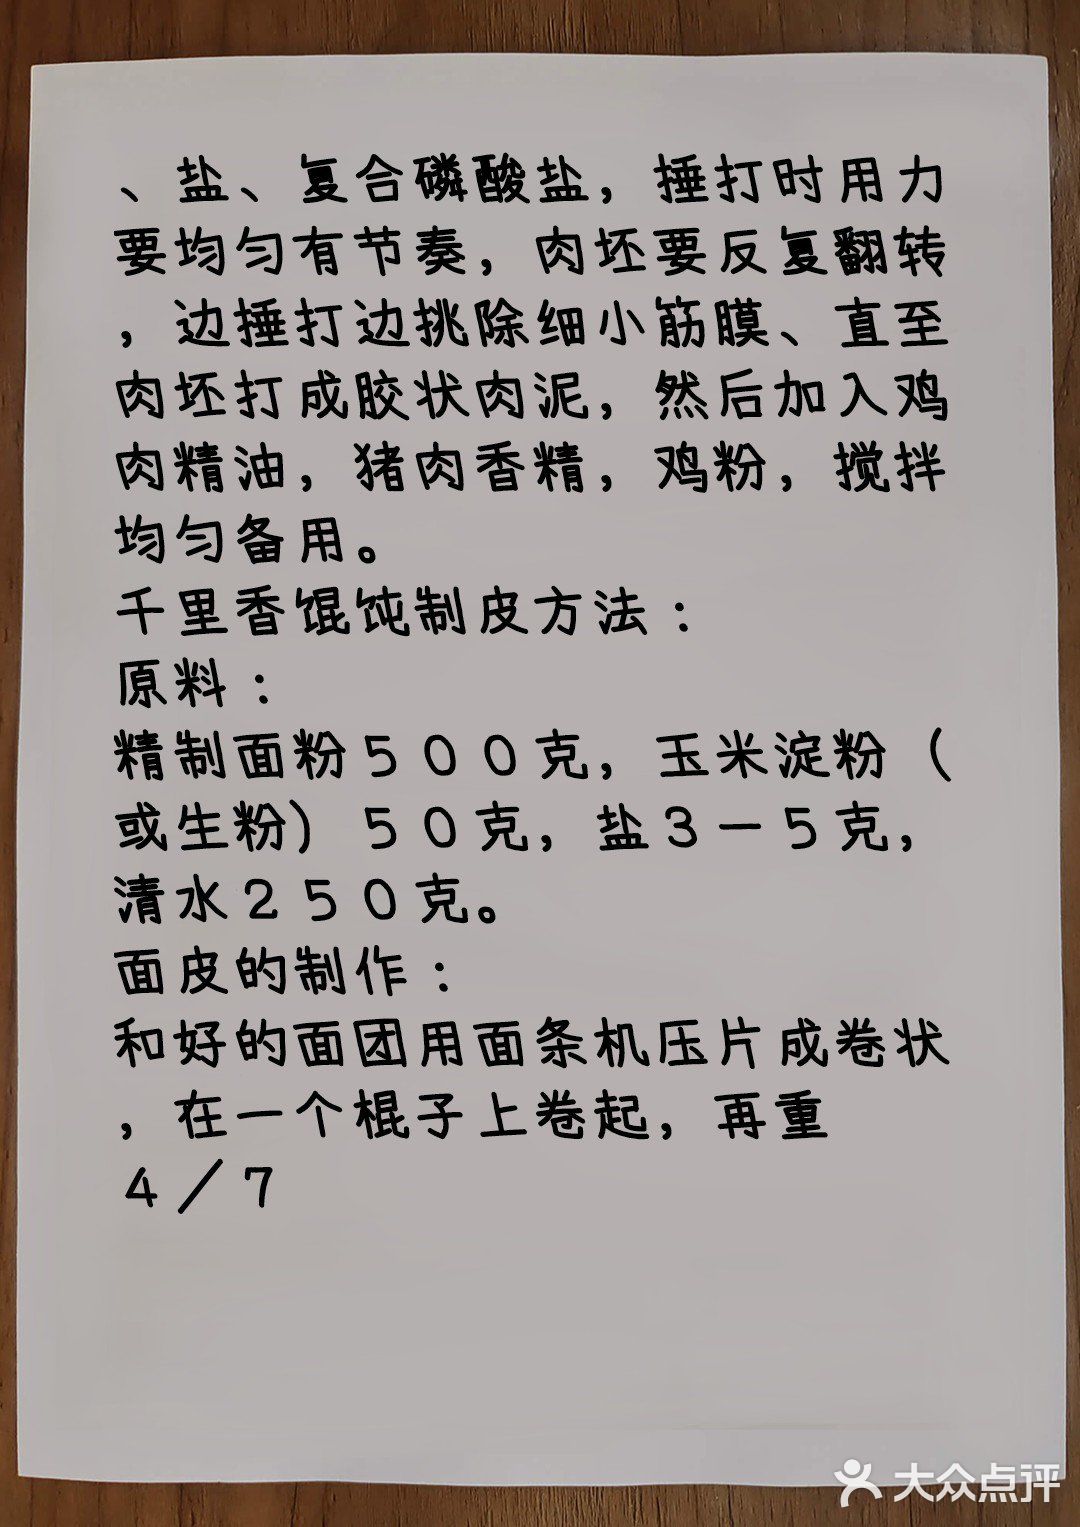 、盐、复合磷酸盐，捶打时用力
要均匀有节奏，肉坯要反复翻转
，边捶打边挑除细小筋膜、直至
肉坯打成胶状肉泥，然后加入鸡
肉精油，猪肉香精，鸡粉，搅拌
均匀备用。
千里香馄饨制皮方法：
原料：
精制面粉５００克，玉米淀粉（
或生粉）５０克，盐３－５克，
清水２５０克。
面皮的制作：
和好的面团用面条机压片成卷状
，在一个棍子上卷起，再重
４／７
大众点评